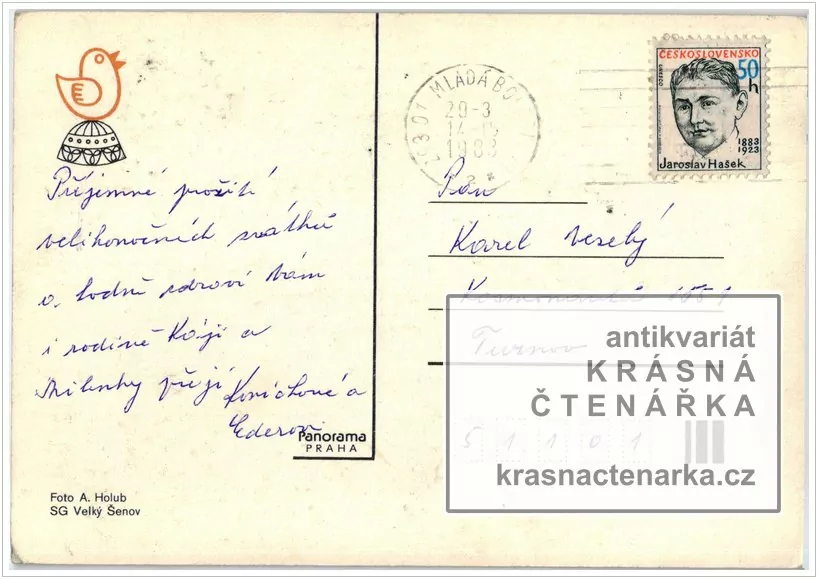 Příjemné prožití
velikonočních svátků
a hodně zdraví Vám
i rodině Káji a
Milenky přejí
Ederovi
Panorama
PRAHA
Foto A. Holub
SG Velký Šenov
MLADÁ BO
29-3
1983
2 *
ČESKOSLOVENSKO
50
h
1883
1923
Jaroslav Hašek
Pan
Karel Veselý
Kosmonautů 1551
Turnov
51101
antikvariát
KRÁSNÁ
ČTENÁŘKA
krasnactenarka.cz